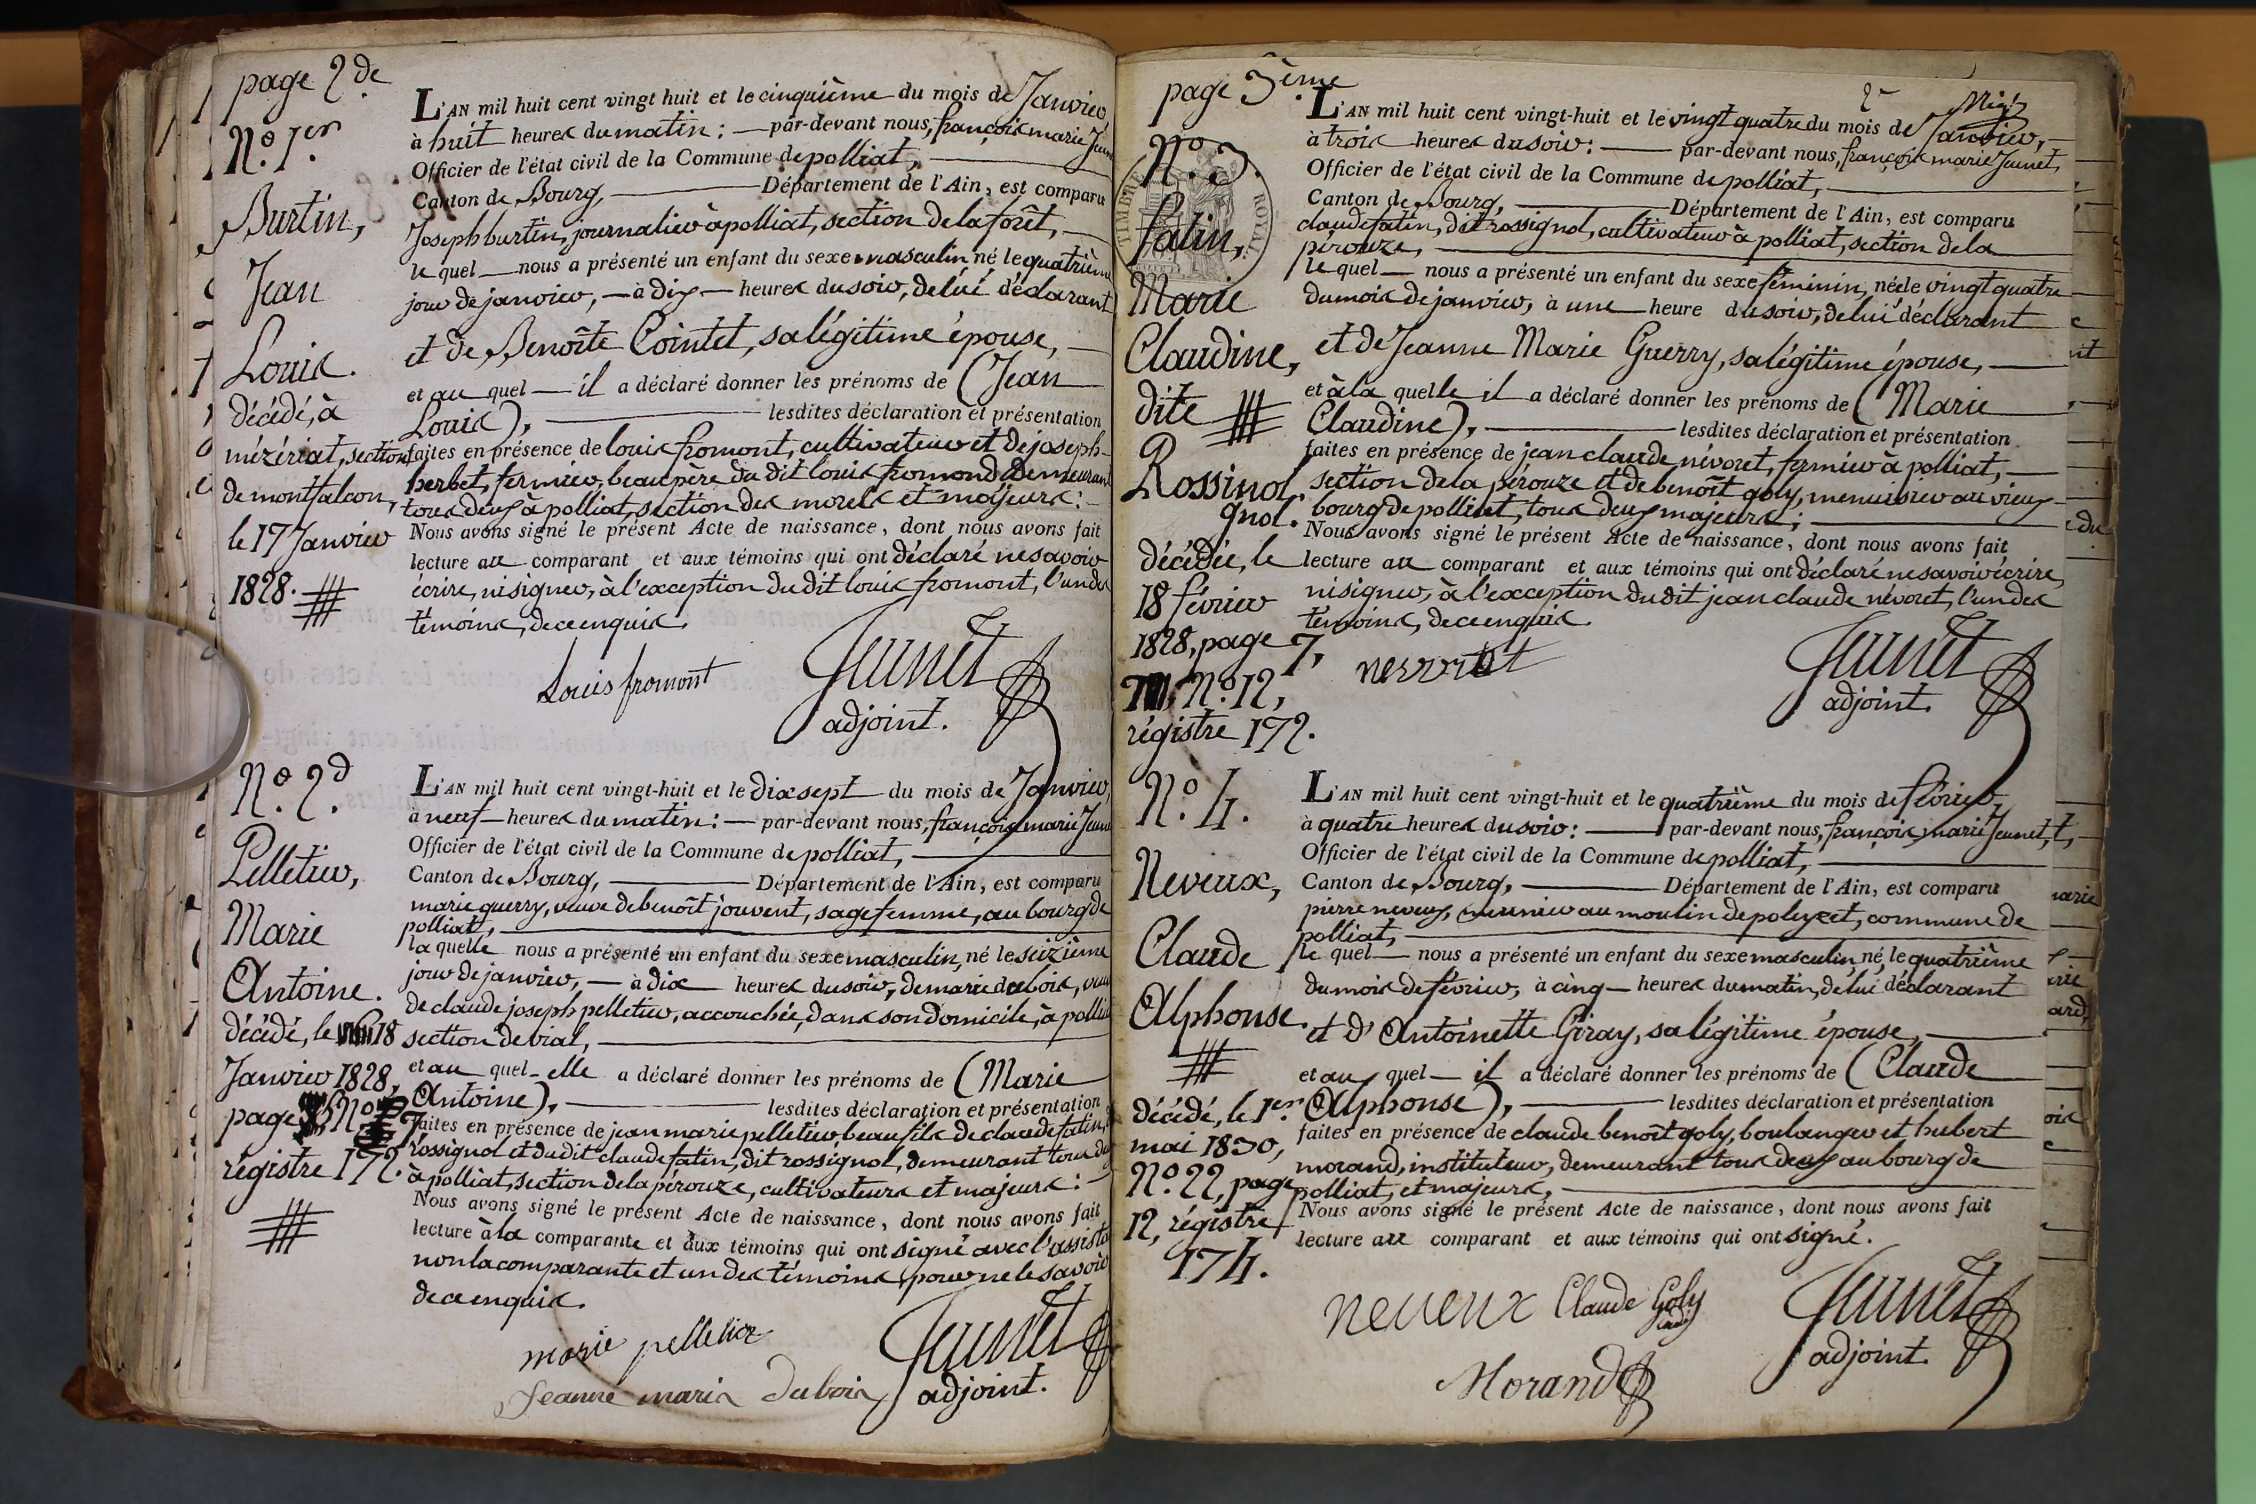 page 2de
N.o 1.er
Burtin,
Jean
Louis.
décédé, à
mézériat, section
de montfalcon,
le 17 Janvier
1828.
L'AN mil huit cent vingt huit et le cinquième du mois de Janvier,
à huit heures du matin : — par-devant nous, françois marie Jeunet
Officier de l'état civil de la Commune de polliat,
Canton de Bourg, Département de l'Ain, est comparu
Joseph burtin, journalier à polliat, section de la forêt,
le quel nous a présenté un enfant du sexe masculin, né le quatrième
jour de janvier, — à dix — heures du soir, de lui déclarant
et de Benoîte Cointet, sa légitime épouse,
et au quel — il a déclaré donner les prénoms de (Jean
Louis), lesdites déclaration et présentation
faites en présence de louis fromont, cultivateur et de joseph
herbet, fermier, beau père du dit louis fromond demeurant
tous deux à polliat, section des morels et majeurs :
Nous avons signé le présent Acte de naissance, dont nous avons fait
lecture au comparant et aux témoins qui ont déclaré ne savoir
écrire, ni signer, à l'exception du dit louis fromont, l'un des
témoins, de ce enquis.
Louis fromont Jeunet
adjoint.
N.o 2.d
Pelletier,
Marie
Antoine.
décédé, le 18
Janvier 1828,
page N.o
régistre 172.
L'AN mil huit cent vingt-huit et le dix sept du mois de Janvier,
à neuf heures du matin : — par-devant nous, françois marie Jeunet
Officier de l'état civil de la Commune de polliat,
Canton de Bourg, Département de l'Ain, est comparu
marie guerry, veuve de benoît jouvent, sage femme, au bourg de
polliat,
la quelle nous a présenté un enfant du sexe masculin, né le seizième
jour de janvier, — à dix heures du soir, de marie dubois, veuve
de claude joseph pelletier, accouchée, dans son domicile, à polliat
section de vial,
et au quel elle a déclaré donner les prénoms de (Marie
Antoine), lesdites déclaration et présentation
faites en présence de jean marie pelletier, beau fils de claude fatin,
rossignol et du dit claude fatin, dit rossignol, demeurant tous deux
à polliat, section de la pérouze, cultivateurs et majeurs :
Nous avons signé le présent Acte de naissance, dont nous avons fait
lecture à la comparante et aux témoins qui ont signé avec l'assista
non la comparante et un des témoins, pour ne le savoir
de ce enquis.
marie pelletier Jeunet
Jeanne maria dubois adjoint.
page 3ème
N.o 3.
TIMBRE ROYAL
fatin,
Marie
Claudine,
dite
Rossinol.
gnol.
décédée, le
18 février
1828, page 7,
N.o 12,
régistre 172.
L'AN mil huit cent vingt-huit et le vingt quatre du mois de Janvier,
à trois heures du soir : par-devant nous, françois marie Jeunet,
Officier de l'état civil de la Commune de polliat,
Canton de Bourg, Département de l'Ain, est comparu
claude fatin, dit rossignol, cultivateur à polliat, section de la
pérouze,
le quel — nous a présenté un enfant du sexe féminin, née le vingt quatre
du mois de janvier, à une heure du soir, de lui déclarant
et de Jeanne Marie Guerry, sa légitime épouse,
et à la quelle il a déclaré donner les prénoms de (Marie
Claudine), lesdites déclaration et présentation
faites en présence de jean claude névoret, fermier à polliat,
section de la pérouze et de benoît goly, menuisier au vieux
bourg de polliat, tous deux majeurs ;
Nous avons signé le présent Acte de naissance, dont nous avons fait
lecture au comparant et aux témoins qui ont déclaré ne savoir écrire,
ni signer, à l'exception du dit jean claude névoret, l'un des
témoins, de ce enquis.
Jeunet
adjoint.
N.o 4.
Neveux,
Claude
Alphonse.
décédé, le 1.er
mai 1830,
N.o 22, page
12, régistre
174.
L'AN mil huit cent vingt-huit et le quatrième du mois de février,
à quatre heures du soir : par-devant nous, françois marie Jeunet,
Officier de l'état civil de la Commune de polliat,
Canton de Bourg, Département de l'Ain, est comparu
pierre neveux, meunier au moulin de polezet, commune de
polliat,
le quel — nous a présenté un enfant du sexe masculin, né, le quatrième
du mois de février, à cinq — heures du matin, de lui déclarant
et d'Antoinette Giray, sa légitime épouse,
et au quel — il a déclaré donner les prénoms de (Claude
Alphonse), lesdites déclaration et présentation
faites en présence de claude benoît goly, boulanger et hubert
morand, instituteur, demeurant tous deux au bourg de
polliat, et majeurs,
Nous avons signé le présent Acte de naissance, dont nous avons fait
lecture au comparant et aux témoins qui ont signé.
neveux Claude Goly Jeunet
Morand adjoint.